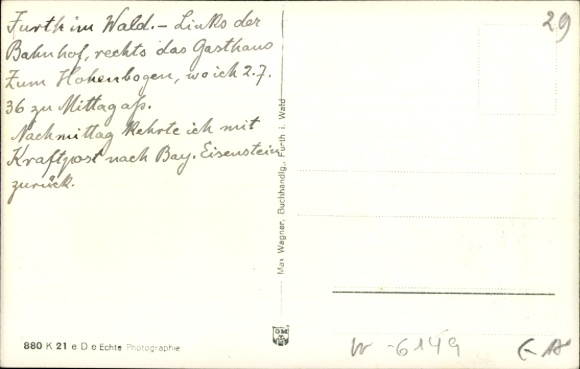 Furth im Wald. – Links der
Bahnhof, rechts das Gasthaus
Zum Hohenbogen, wo ich 2.7.
36 zu Mittag aß.
Nachmittag kehrte ich mit
Kraftpost nach Bay. Eisenstein
zurück.
29
Max Wagner, Buchhandlg., Furth i. Wald
880 K 21 e D e Echte Photographie
W -6149